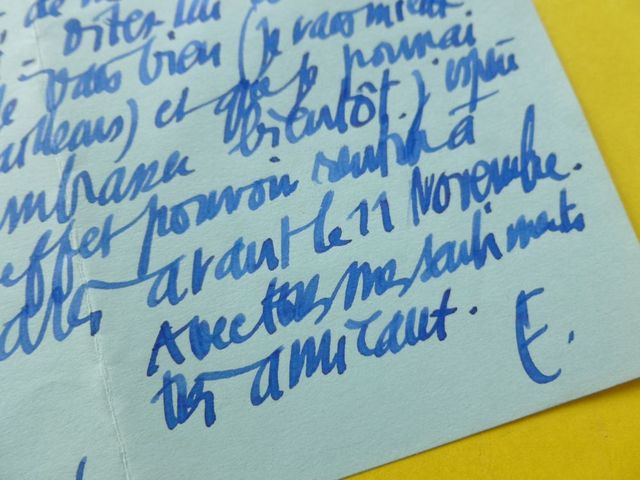 de
- Dites lui
vais bien (je vais mieux
d'ailleurs) et que je pourrai
embrasser bientôt j'espère
effet pouvoir rentrer à
avant le 11 Novembre.
Avec tous mes sentiments
très amicaux.
E.